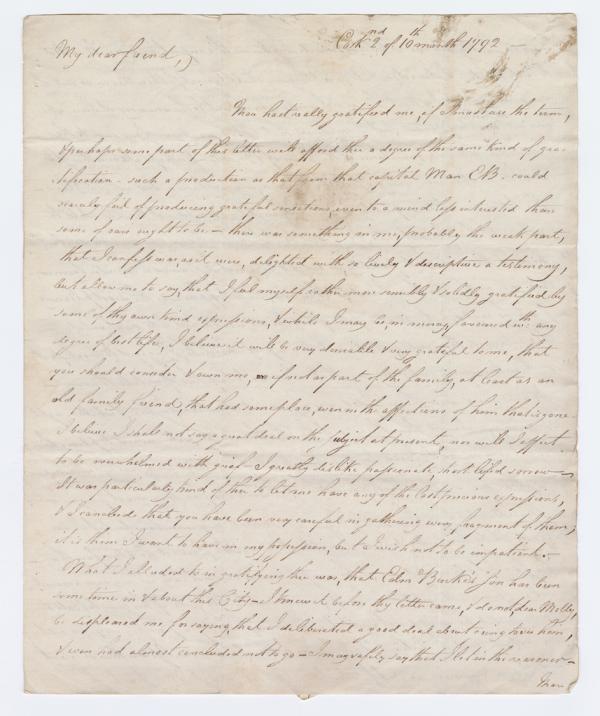 Cork 2nd of 10th month 1792 —
My dear friend,
Thou hast really gratified me, if I must use the term,
& perhaps some part of this letter will afford thee a degree of the same kind of gra-
tification - such a production as that from that capital Man EB. could
scarcely fail of producing grateful sensations, even to a mind less interested than
some of ours ought to be — there was something in me, probably the weak part,
that I confess was, as it were, delighted with so lively & descriptive a testimony,
but allow me to say, that I feel myself rather more sensibly & solidly gratified by
some of thy own kind expressions, & while I may be, in mercy, favoured wth any
degree of best life, I believe it will be very desirable & very grateful to me, that
you should consider & own me, if not as part of the family, at least as an
old family friend, that had some place, even in the affections of him that is gone -
I believe I shall not say a great deal on the subject at present, nor will I affect
to be overwhelmed with grief — I greatly dislike passionate short lif'd sorrow —
It was particularly kind of thee to let me have any of the last precious expressions,
& I concluded that you have been very careful in gathering every fragment of them;
it is them I want to have in my possession, but I wish not to be impatient. —
What I alluded to in gratifying thee was, that Edmd Burke's son has been
some time in & about this City — I knew it before thy letter came, & do not, dear Molly,
be displeased me for saying, that I deliberated a good deal about going to see him,
& even had almost concluded not to go — I may safely say that I let in the reasoner —
Thou